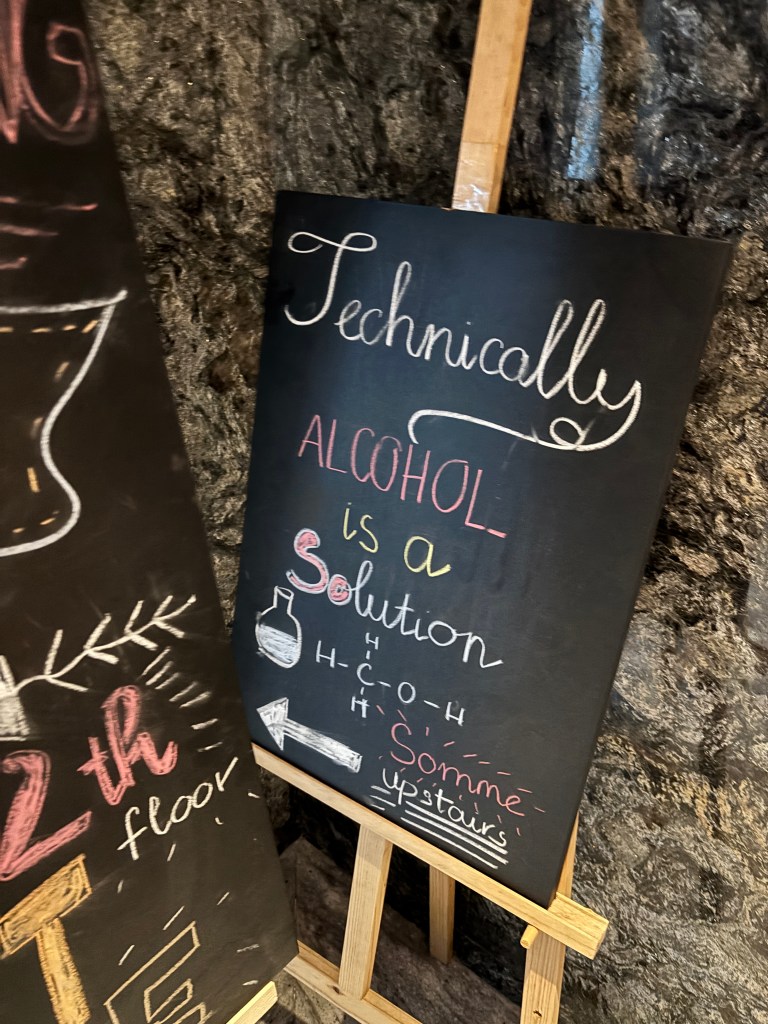 Technically
ALCOHOL
is a
Solution
H
H-C-O-H
H
Somme
upstairs
2th
floor